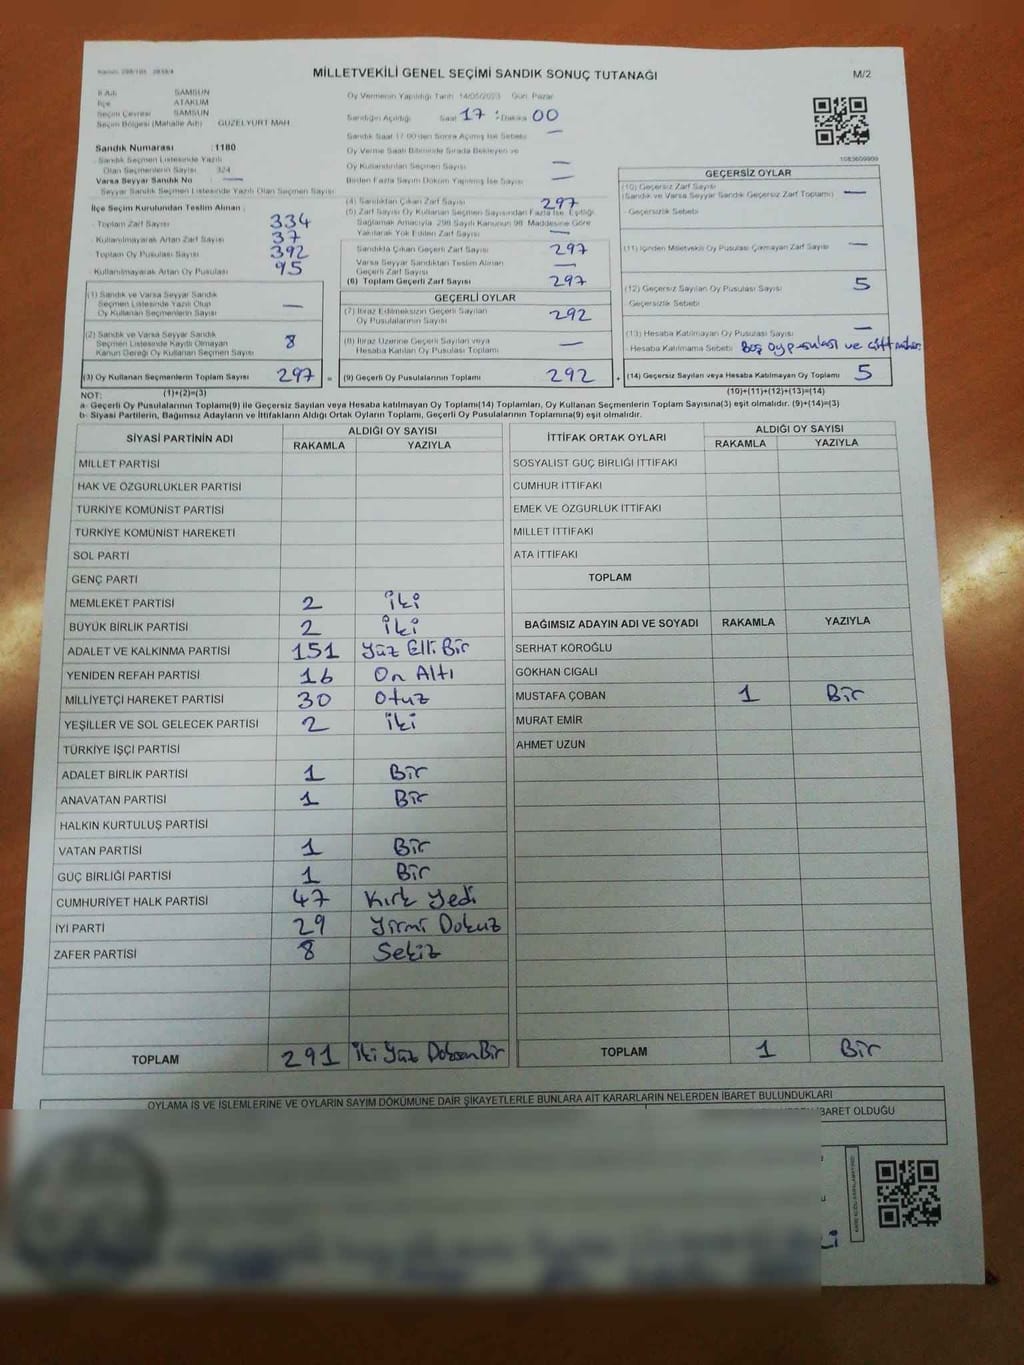 MİLLETVEKİLİ GENEL SEÇİMİ SANDIK SONUÇ TUTANAĞI
M/2
İl Adı SAMSUN
İlçe ATAKUM
Seçim Çevresi SAMSUN
Seçim Bölgesi (Mahalle Adı) GÜZELYURT MAH.
Oy Vermenin Yapıldığı Tarih 14/05/2023 Gün Pazar
Sandığın Açıldığı Saat 17 : Dakika 00
Sandık Saat 17:00'den Sonra Açılmış İse Sebebi —
Oy Verme Saati Bitiminde Sırada Bekleyen ve
Oy Kullandırılan Seçmen Sayısı —
Birden Fazla Sayım Döküm Yapılmış İse Sayısı —
1083609909
Sandık Numarası : 1180
Sandık Seçmen Listesinde Yazılı
Olan Seçmenlerin Sayısı 324
Varsa Seyyar Sandık No —
Seyyar Sandık Seçmen Listesinde Yazılı Olan Seçmen Sayısı
İlçe Seçim Kurulundan Teslim Alınan :
Toplam Zarf Sayısı 334
Kullanılmayarak Artan Zarf Sayısı 37
Toplam Oy Pusulası Sayısı 392
Kullanılmayarak Artan Oy Pusulası 95
(1) Sandık ve Varsa Seyyar Sandık
Seçmen Listesinde Yazılı Olup
Oy Kullanan Seçmen Sayısı —
(2) Sandık ve Varsa Seyyar Sandık
Seçmen Listesinde Kayıtlı Olmayan
Kanun Gereği Oy Kullanan Seçmen Sayısı 8
(3) Oy Kullanan Seçmenlerin Toplam Sayısı 297
(1)+(2)=(3)
(4) Sandıktan Çıkan Zarf Sayısı 297
(5) Zarf Sayısı Oy Kullanan Seçmen Sayısından Fazla İse, Eşitliği
Sağlamak Amacıyla 298 Sayılı Kanunun 98. Maddesine Göre
Yakılarak Yok Edilen Zarf Sayısı —
Sandıkta Çıkan Geçerli Zarf Sayısı 297
Varsa Seyyar Sandıktan Teslim Alınan
Geçerli Zarf Sayısı —
(6) Toplam Geçerli Zarf Sayısı 297
GEÇERLİ OYLAR
(7) İtiraz Edilmeksizin Geçerli Sayılan
Oy Pusulalarının Sayısı 292
(8) İtiraz Üzerine Geçerli Sayılan veya
Hesaba Katılan Oy Pusulaları Toplamı —
= (9) Geçerli Oy Pusulalarının Toplamı 292
GEÇERSİZ OYLAR
(10) Geçersiz Zarf Sayısı
(Sandık ve Varsa Seyyar Sandık Geçersiz Zarf Toplamı) —
- Geçersizlik Sebebi
(11) İçinden Milletvekili Oy Pusulası Çıkmayan Zarf Sayısı —
(12) Geçersiz Sayılan Oy Pusulası Sayısı 5
Geçersizlik Sebebi
(13) Hesaba Katılmayan Oy Pusulası Sayısı —
- Hesaba Katılmama Sebebi Boş oy pusulası ve çift mühür.
+ (14) Geçersiz Sayılan veya Hesaba Katılmayan Oy Toplamı 5
(10)+(11)+(12)+(13)=(14)
NOT:
a- Geçerli Oy Pusulalarının Toplamı(9) ile Geçersiz Sayılan veya Hesaba katılmayan Oy Toplamı(14) Toplamları, Oy Kullanan Seçmenlerin Toplam Sayısına(3) eşit olmalıdır. (9)+(14)=(3)
b- Siyasi Partilerin, Bağımsız Adayların ve İttifakların Aldığı Ortak Oyların Toplamı, Geçerli Oy Pusulalarının Toplamına(9) eşit olmalıdır.
SİYASİ PARTİNİN ADI
ALDIĞI OY SAYISI
RAKAMLA YAZIYLA
MİLLET PARTİSİ
HAK VE ÖZGÜRLÜKLER PARTİSİ
TÜRKİYE KOMÜNİST PARTİSİ
TÜRKİYE KOMÜNİST HAREKETİ
SOL PARTİ
GENÇ PARTİ
MEMLEKET PARTİSİ 2 İki
BÜYÜK BİRLİK PARTİSİ 2 İki
ADALET VE KALKINMA PARTİSİ 151 Yüz Elli Bir
YENİDEN REFAH PARTİSİ 16 On Altı
MİLLİYETÇİ HAREKET PARTİSİ 30 Otuz
YEŞİLLER VE SOL GELECEK PARTİSİ 2 İki
TÜRKİYE İŞÇİ PARTİSİ
ADALET BİRLİK PARTİSİ 1 Bir
ANAVATAN PARTİSİ 1 Bir
HALKIN KURTULUŞ PARTİSİ
VATAN PARTİSİ 1 Bir
GÜÇ BİRLİĞİ PARTİSİ 1 Bir
CUMHURİYET HALK PARTİSİ 47 Kırk Yedi
İYİ PARTİ 29 Yirmi Dokuz
ZAFER PARTİSİ 8 Sekiz
TOPLAM 291 İki Yüz Doksan Bir
İTTİFAK ORTAK OYLARI
ALDIĞI OY SAYISI
RAKAMLA YAZIYLA
SOSYALİST GÜÇ BİRLİĞİ İTTİFAKI
CUMHUR İTTİFAKI
EMEK VE ÖZGÜRLÜK İTTİFAKI
MİLLET İTTİFAKI
ATA İTTİFAKI
TOPLAM
BAĞIMSIZ ADAYIN ADI VE SOYADI RAKAMLA YAZIYLA
SERHAT KÖROĞLU
GÖKHAN CIGALI
MUSTAFA ÇOBAN 1 Bir
MURAT EMİR
AHMET UZUN
TOPLAM 1 Bir
OYLAMA İŞ VE İŞLEMLERİNE VE OYLARIN SAYIM DÖKÜMÜNE DAİR ŞİKAYETLERLE BUNLARA AİT KARARLARIN NELERDEN İBARET BULUNDUKLARI
İBARET OLDUĞU